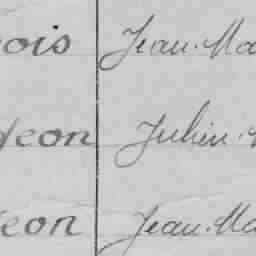 ois Jean Ma
deon Julien
eon Jean Ma